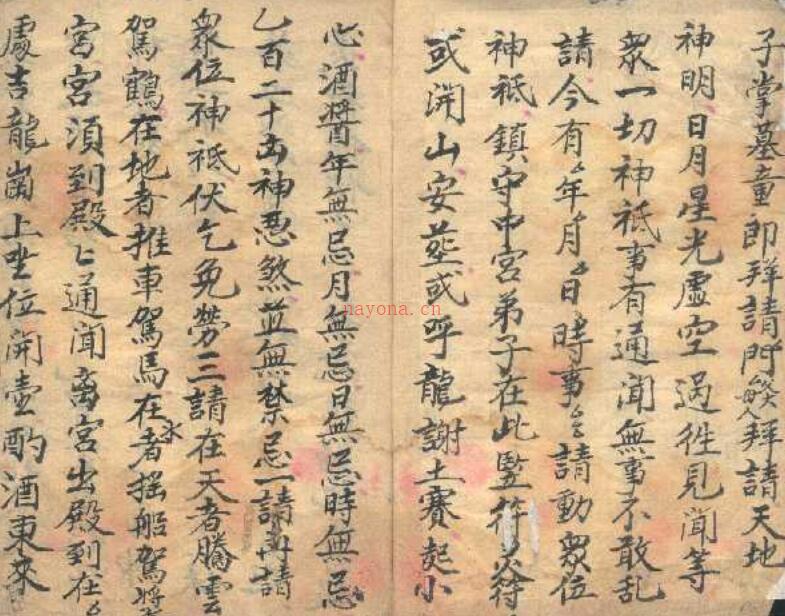 子掌墓童即拜請門發人拜請天地
神明日月星光虛空過徃見聞等
眾一切神祇事有通聞無事不敢乱
請今有年月日時事請動眾位
神祇鎮守中宮弟子在此竪符炎符
或開山安葬或呼龍謝土賽起小
心酒醬年無忌月無忌日無忌時無忌
乙百二十凶神惡煞並無禁忌一請再請
眾位神祇伏乞免勞三請在天者騰雲
駕鶴在地者推車駕馬在水者摇船駕槳
宮宮須到殿匕通聞离宮出殿到在
處吉龍崗上坐位開壺酌酒東來
nayona.cn